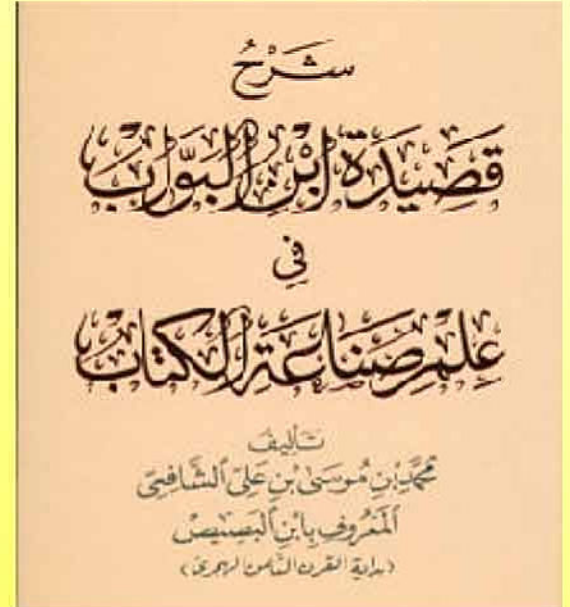 شَرْحُ
قَصِيدَة ابْنِ الْبَوَّابِ
فِي
عِلْمِ صِنَاعَةِ الْكِتَابِ
تَأليفُ
مُحَمَّد بْنِ مُوسَى بْنِ عَلِيّ الشَّافِعِيّ
الْمَعْرُوفِ بِابْنِ الْبَصِيصِ
(بداية القرن الثامن الهجري)